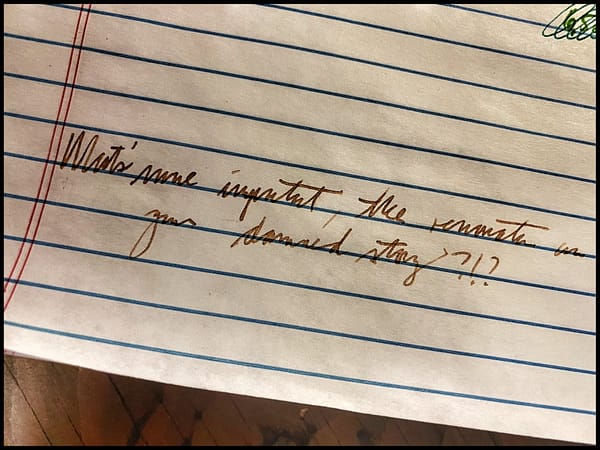 What's more important, the renovation or
your damned story?!?